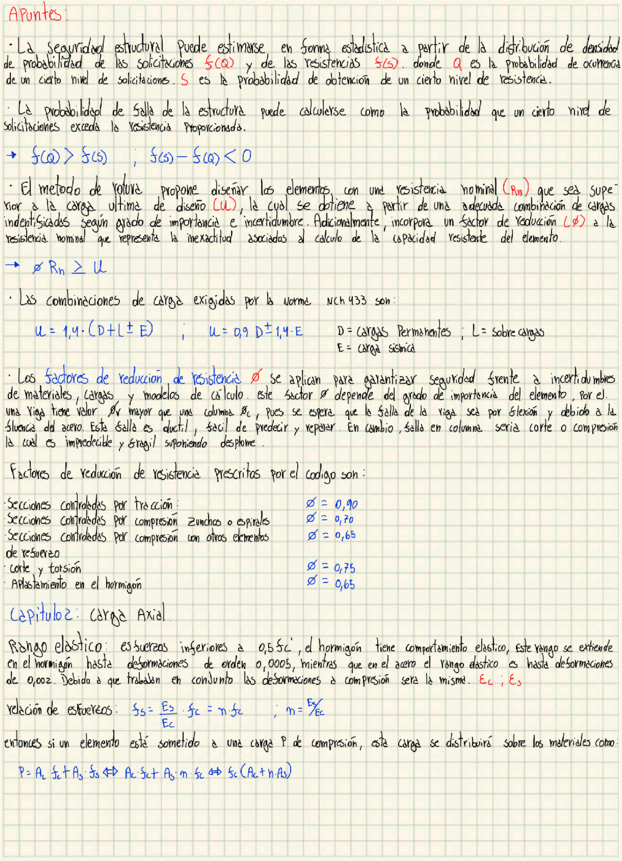 Apuntes:
· La seguridad estructural puede estimarse en forma estadistica a partir de la distribución de densidad
de probabilidad de las solicitaciones f(Q) y de las resistencias f(S). donde Q es la probabilidad de ocurrencia
de un cierto nivel de solicitaciones. S es la probabilidad de obtención de un cierto nivel de resistencia.
· La probabilidad de falla de la estructura puede calcularse como la probabilidad que un cierto nivel de
solicitaciones exceda la resistencia proporcionada.
→ f(Q) > f(S) ; f(S) - f(Q) < 0
· El metodo de rotura propone diseñar los elementos con una resistencia nominal (Rn) que sea supe-
rior a la carga ultima de diseño (U), la cual se obtiene a partir de una adecuada combinación de cargas
indentificadas según grado de importancia e incertidumbre. Adicionalmente, incorpora un factor de reducción (ø) a la
resistencia nominal que representa la inexactitud asociados al calculo de la capacidad resistente del elemento.
→ ø Rn ≥ U
· Las combinaciones de carga exigidas por la norma NCh 433 son:
U = 1,4·(D+L±E) ; U = 0,9 D ± 1,4·E D = cargas Permanentes ; L = sobre cargas
E = carga sísmica
· Los factores de reducción de resistencia ø se aplican para garantizar seguridad frente a incertidumbres
de materiales, cargas y modelos de cálculo. este factor ø depende del grado de importancia del elemento, por ej.
una viga tiene valor øv mayor que una columna øc, pues se espera que la falla de la viga sea por flexión y debido a la
fluencia del acero. Esta falla es ductil, facil de predecir y reparar. En cambio, falla en columna seria corte o compresión
la cual es impredecible y fragil suponiendo desplome.
Factores de reducción de resistencia prescritos por el codigo son:
·Secciones controladas por tracción: ø = 0,90
·Secciones controladas por compresión zunchos o espirales ø = 0,70
·Secciones controladas por compresión con otros elementos ø = 0,65
de refuerzo
·corte y torsión ø = 0,75
·Aplastamiento en el hormigón ø = 0,65
Capitulo 2: Carga Axial.
Rango elástico: esfuerzos inferiores a 0,5 fc', el hormigón tiene comportamiento elastico, Este rango se extiende
en el hormigón hasta deformaciones de orden 0,0005, mientras que en el acero el rango elastico es hasta deformaciones
de 0,002. Debido a que trabajan en conjunto las deformaciones a compresión sera la misma. Ɛc ; Ɛs
relación de esfuerzos: fs = Es/Ec · fc = n·fc ; n = Es/Ec
entonces si un elemento está sometido a una carga P de compresión, esta carga se distribuirá sobre los materiales como:
P = Ac·fc + As·fs ⇔ Ac·fc + As·n·fc ⇔ fc(Ac+n·As)